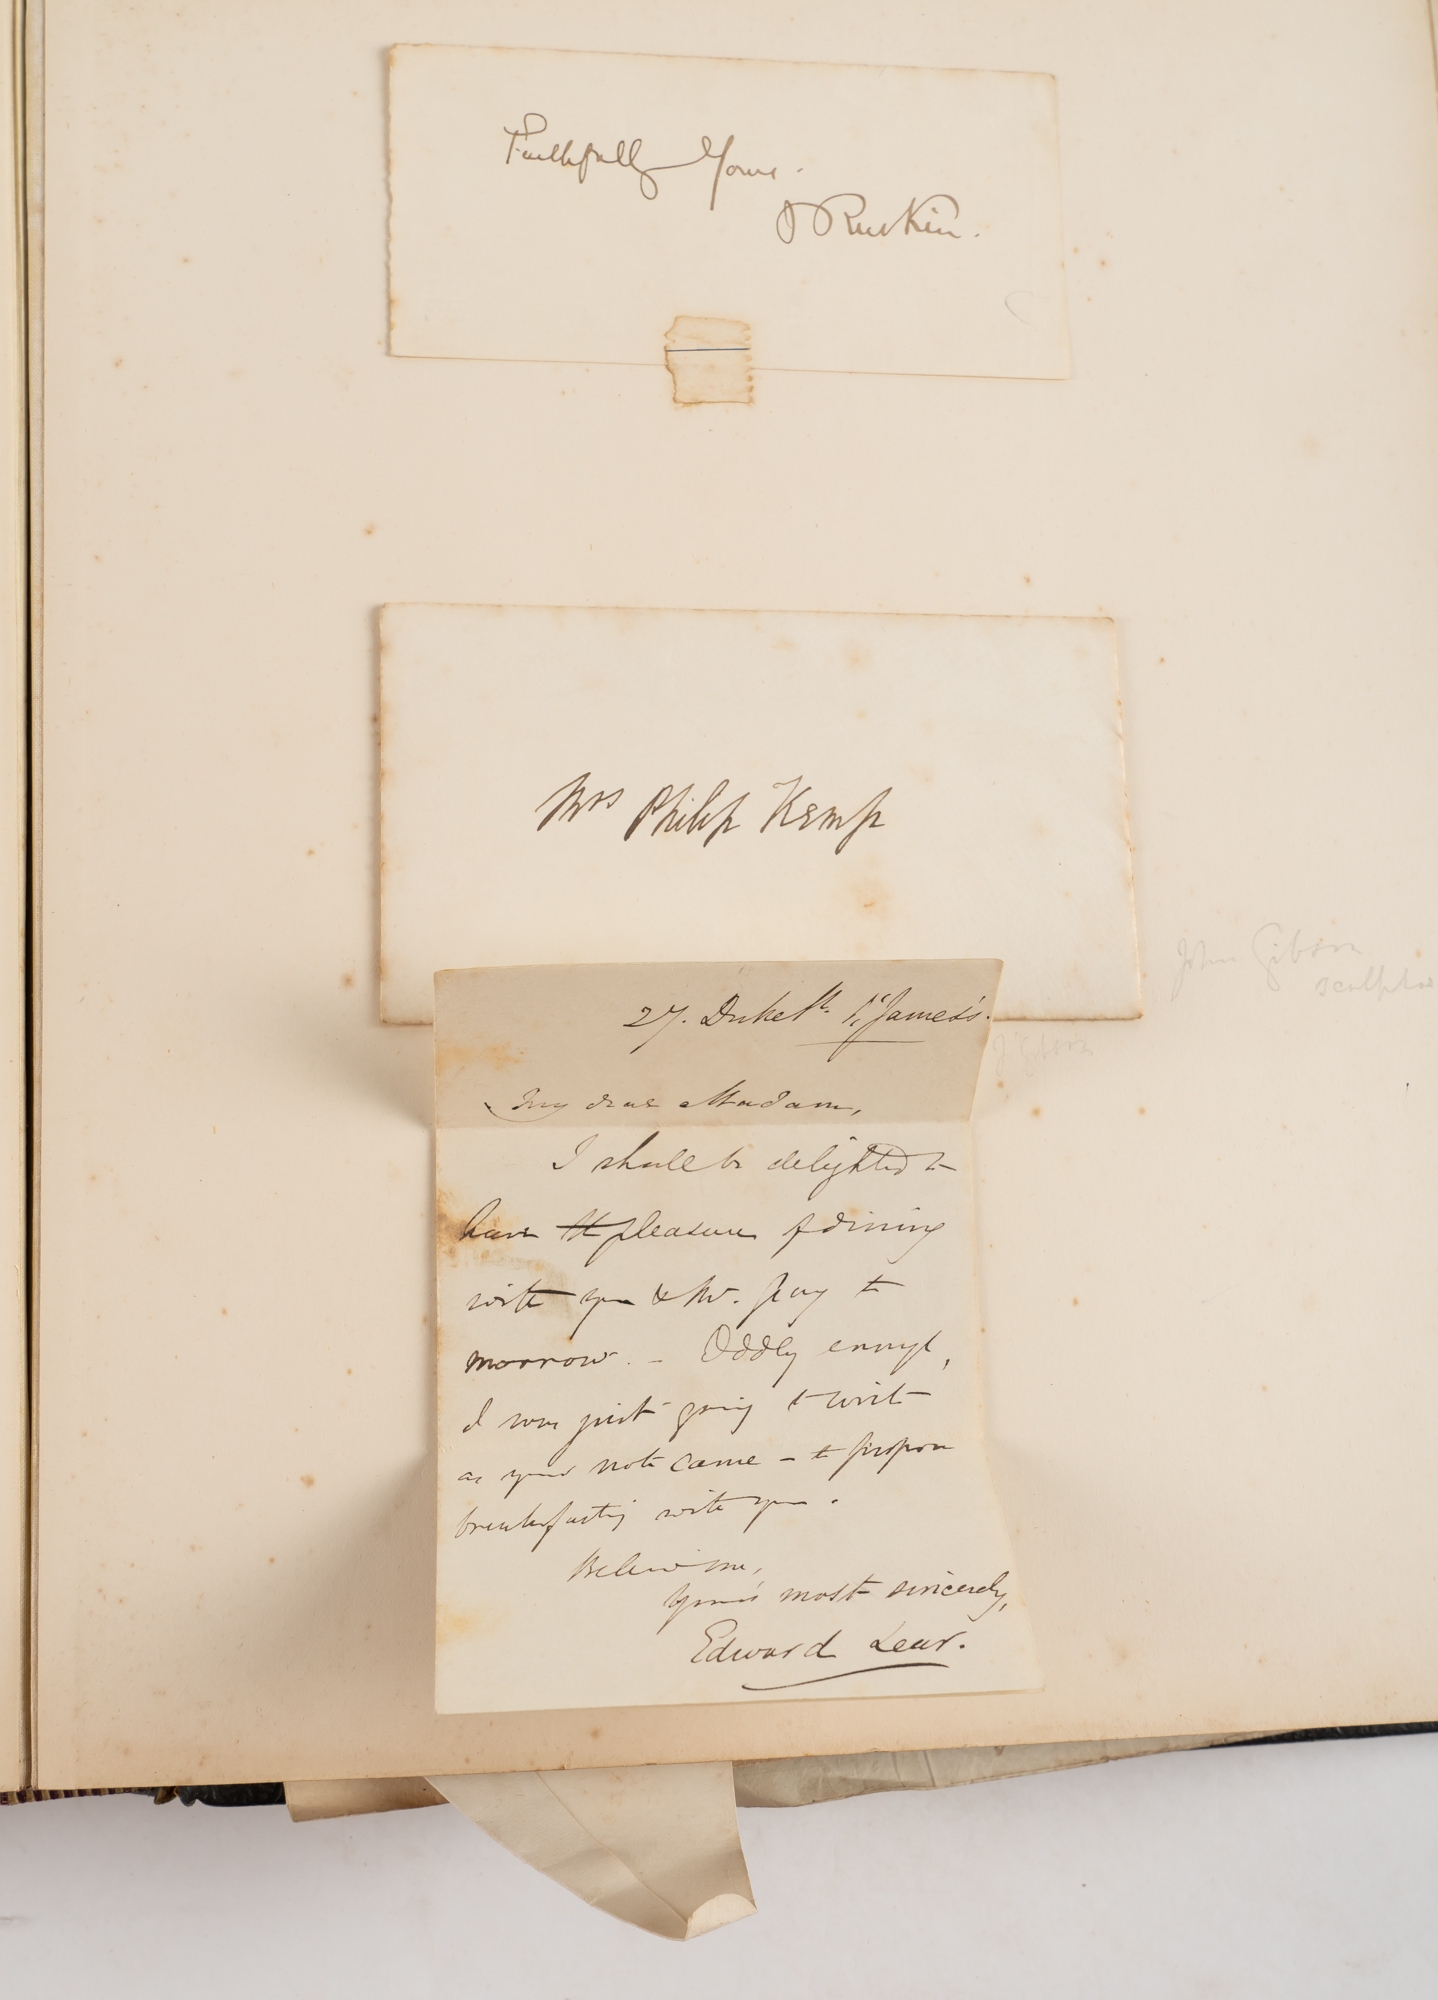 Faithfully Yours.
J Ruskin.
Mrs Philip Kemp
John Gibson
sculptor
J Gibson
27. Duke St. St. James's.
My dear Madam,
I shall be delighted to
have the pleasure of dining
with you & Mr. to
morrow. - Oddly enough,
I was just going to write
as your note came - to propose
breakfasting with you.
Believe me,
Yours most sincerely,
Edward Lear.